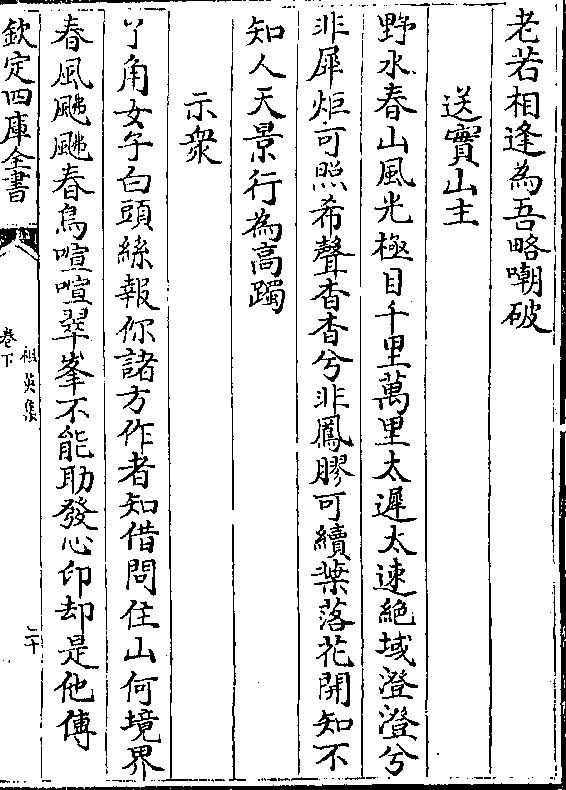 老若相逢為吾略嘲破
送寶山主
野水春山風光極目千里萬里太遲太速絶域澄澄兮
非犀炬可照希聲杳杳兮非鳳膠可續葉落花開知不
知人天景行為高躅
示衆
丫角女子白頭絲報你諸方作者知借問住山何境界
春風颺颺春鳥喧喧翠峯不能助發心印却是他傳
欽定四庫全書
祖英集
卷下
二十